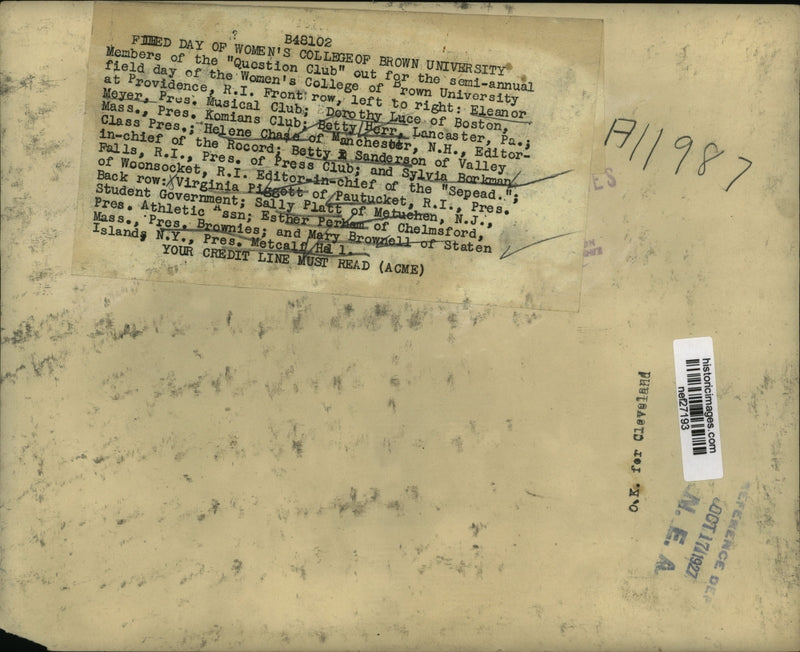 B48102
FIEED DAY OF WOMEN'S COLLEGEOF BROWN UNIVERSITY
Members of the "Question Club" out for the semi-annual
field day of the Women's College of Brown University
at Providence, R.I. Front row, left to right: Eleanor
Meyer, Pres. Musical Club; Dorothy Luce of Boston,
Mass., Pres. Komians Club; Betty Horr, Lancaster, Pa.;
Class Pres.; Helene Chase of Manchester, N.H., Editor-
in-chief of the Record; Betty Sanderson of Valley
Falls, R.I., Pres. of Press Club; and Sylvia Borkman
of Woonsocket, R.I. Editor-in-chief of the "Sepead.";
Back row: Virginia Piggett of Pautucket, R.I., Pres.
Student Government; Sally Platt of Metuchen, N.J.,
Pres. Athletic Assn; Esther Perham of Chelmsford,
Mass., Pres. Brownies; and Mary Brownell of Staten
Island, N.Y., Pres. Metcalf Hall.
YOUR CREDIT LINE MUST READ (ACME)
A11987
O.K. for Cleveland
historicimages.com
nef27193
REFERENCE DEP
OCT 17 1927
N. E. A